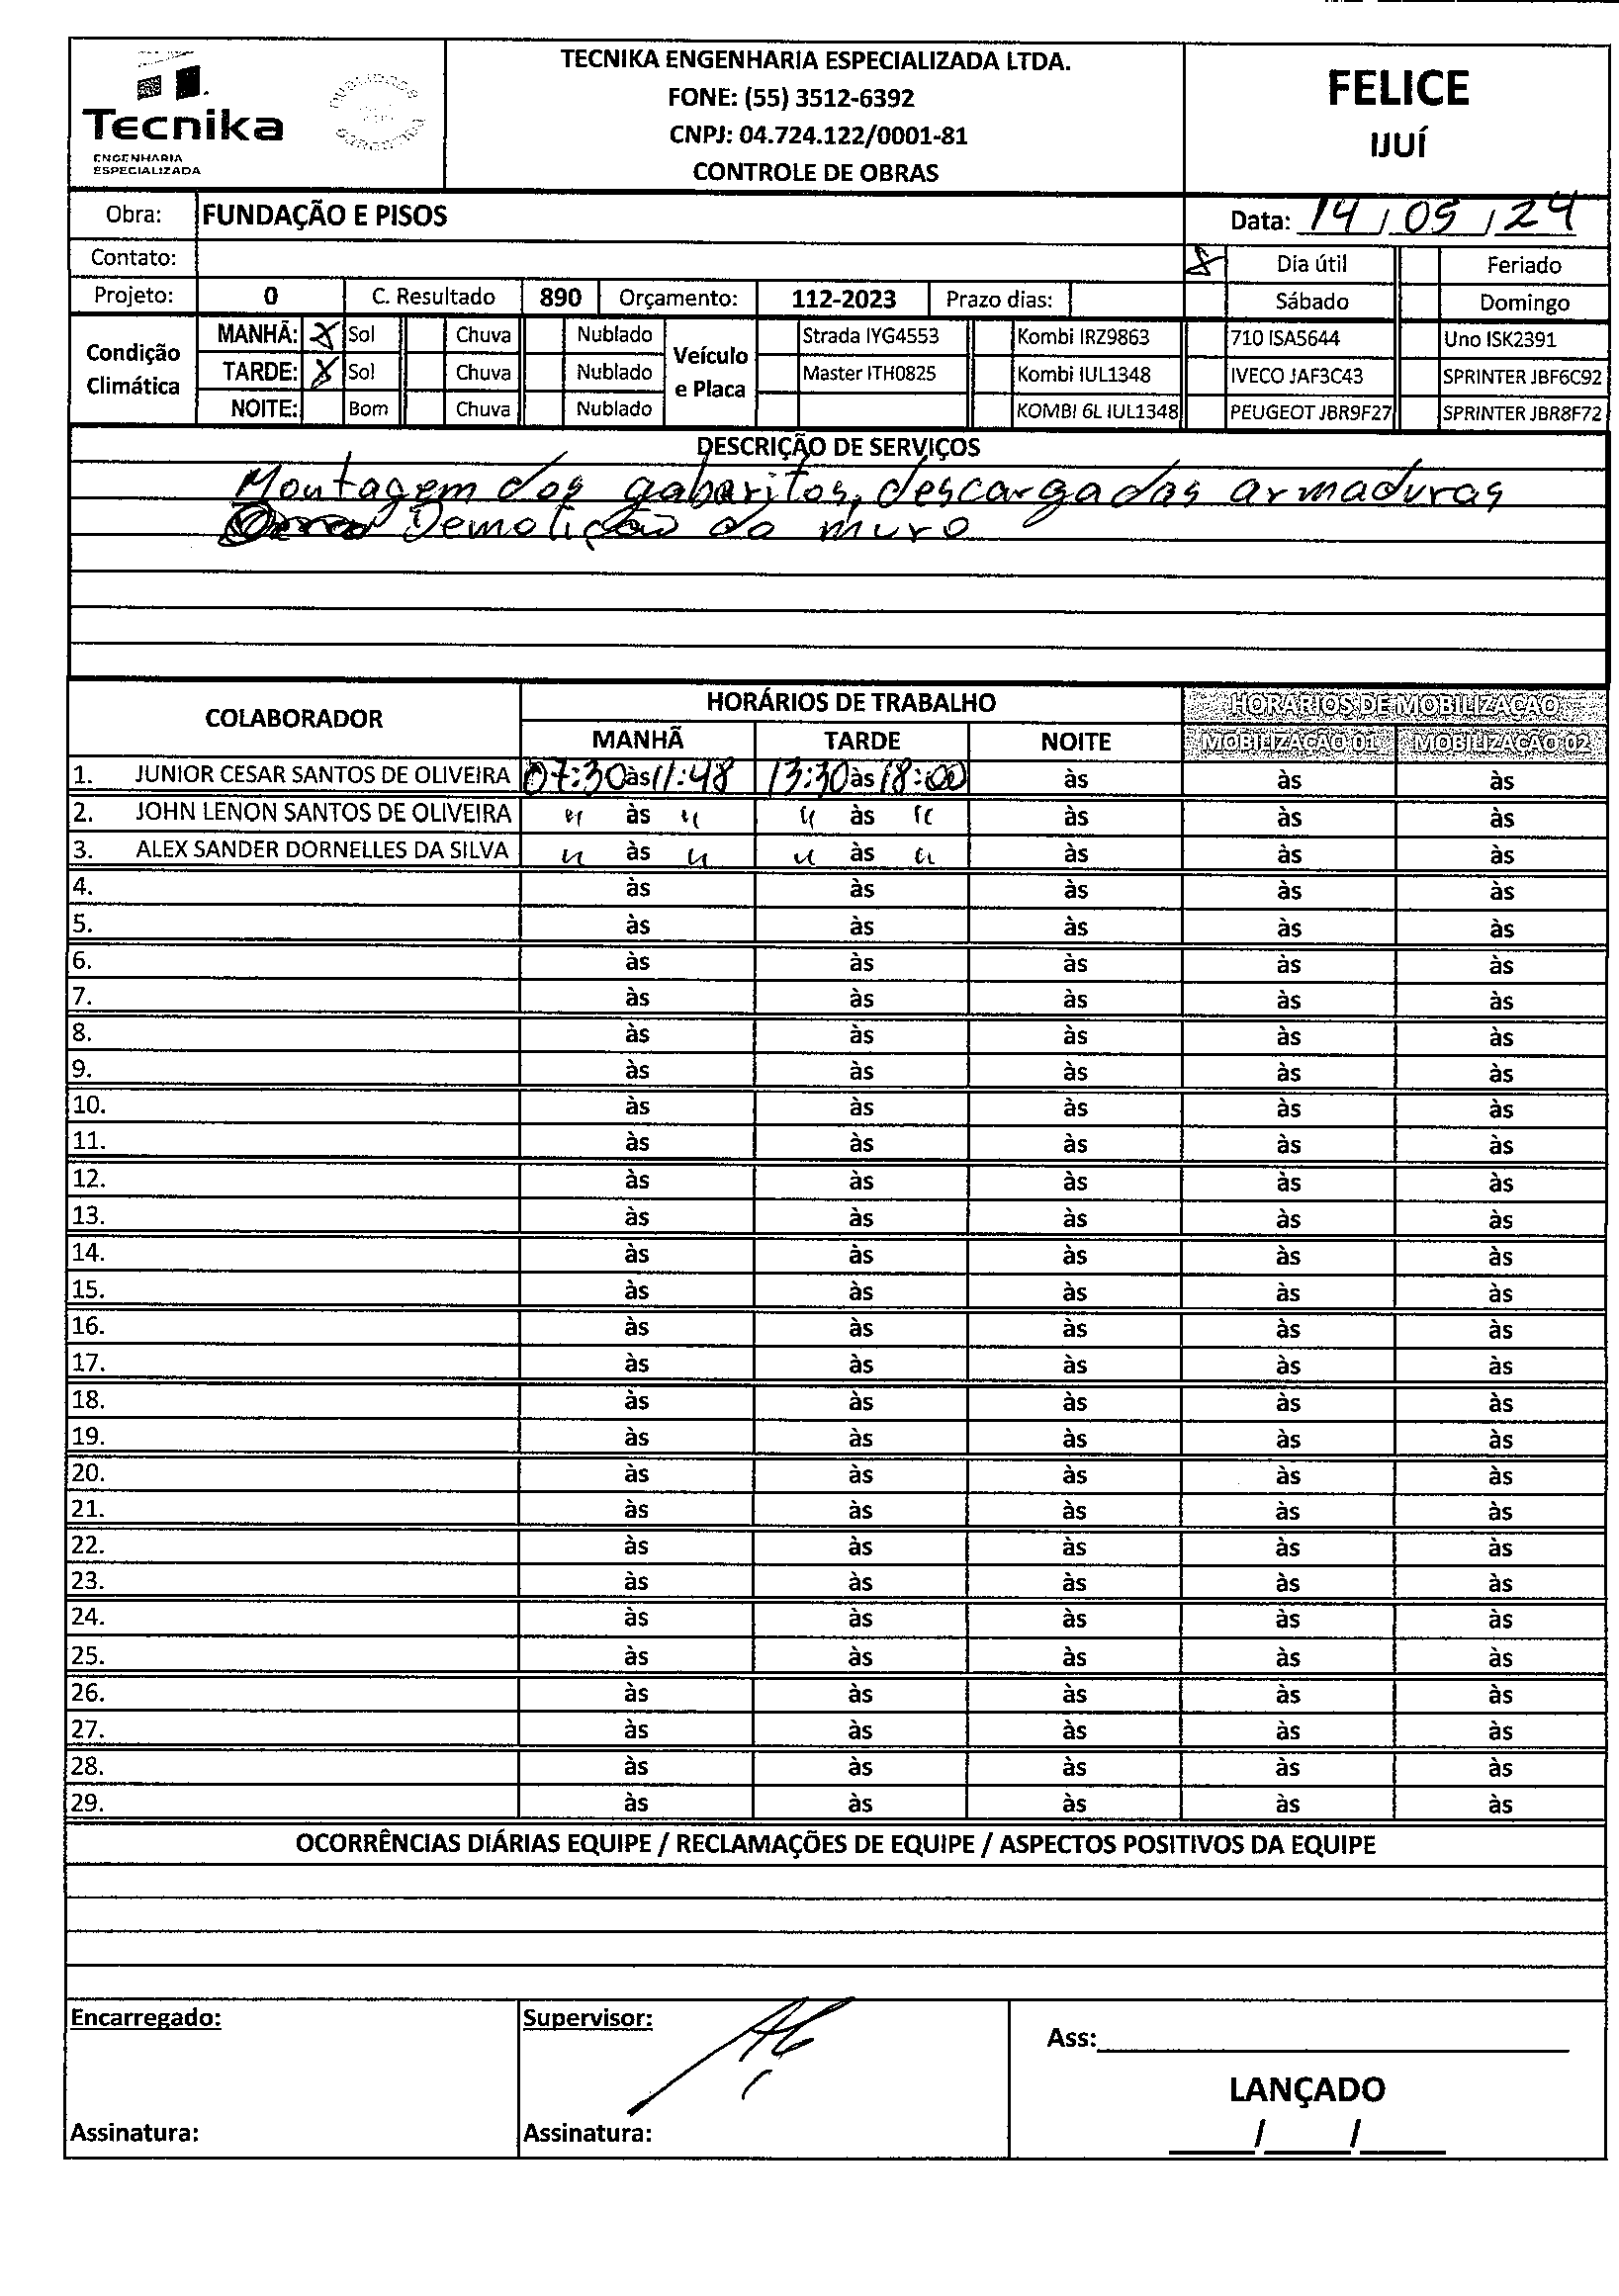 Tecnika
ENGENHARIA
ESPECIALIZADA
TECNIKA ENGENHARIA ESPECIALIZADA LTDA.
FONE: (55) 3512-6392
CNPJ: 04.724.122/0001-81
CONTROLE DE OBRAS
FELICE
IJUÍ
Obra: FUNDAÇÃO E PISOS
Data: 14 / 05 / 24
Contato:
X Dia útil Feriado
Projeto: 0 C. Resultado 890 Orçamento: 112-2023 Prazo dias: Sábado Domingo
Condição Climática
MANHÃ: X Sol Chuva Nublado
TARDE: X Sol Chuva Nublado
NOITE: Bom Chuva Nublado
Veículo e Placa
Strada IYG4553 Kombi IRZ9863 710 ISA5644 Uno ISK2391
Master ITH0825 Kombi IUL1348 IVECO JAF3C43 SPRINTER JBF6C92
KOMBI 6L IUL1348 PEUGEOT JBR9F27 SPRINTER JBR8F72
DESCRIÇÃO DE SERVIÇOS
Montagem dos gabaritos, descarga das armaduras
Demolição do muro
COLABORADOR HORÁRIOS DE TRABALHO HORÁRIOS DE MOBILIZAÇÃO
MANHÃ TARDE NOITE MOBILIZAÇÃO 01 MOBILIZAÇÃO 02
1. JUNIOR CESAR SANTOS DE OLIVEIRA 07:30 às 11:48 13:30 às 18:00 às às às
2. JOHN LENON SANTOS DE OLIVEIRA " às " " às " às às às
3. ALEX SANDER DORNELLES DA SILVA " às " " às " às às às
4. às às às às às
5. às às às às às
6. às às às às às
7. às às às às às
8. às às às às às
9. às às às às às
10. às às às às às
11. às às às às às
12. às às às às às
13. às às às às às
14. às às às às às
15. às às às às às
16. às às às às às
17. às às às às às
18. às às às às às
19. às às às às às
20. às às às às às
21. às às às às às
22. às às às às às
23. às às às às às
24. às às às às às
25. às às às às às
26. às às às às às
27. às às às às às
28. às às às às às
29. às às às às às
OCORRÊNCIAS DIÁRIAS EQUIPE / RECLAMAÇÕES DE EQUIPE / ASPECTOS POSITIVOS DA EQUIPE
Encarregado: Supervisor:
Ass:
LANÇADO
Assinatura: Assinatura: / /